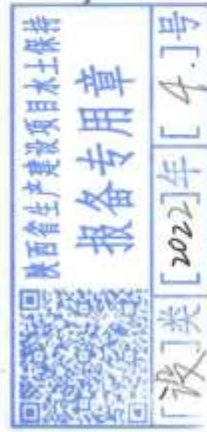 陕西省生产建设项目水土保持
报备专用章
[设]类[2022]年[4.]号